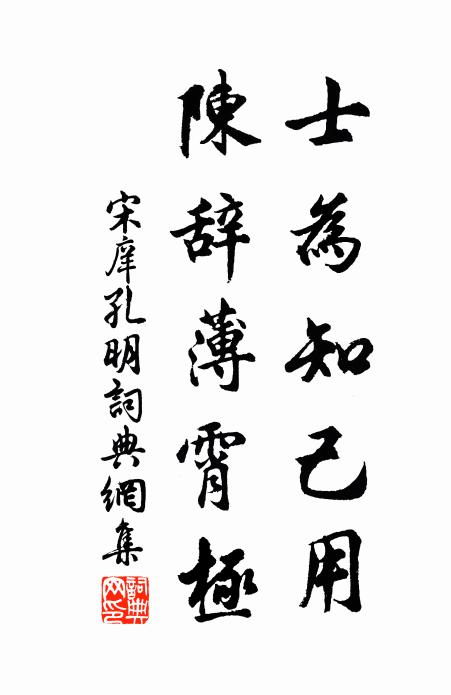 士為知己用
陳辞薄霄極
宋庠孔明詞典網集
詞典网印